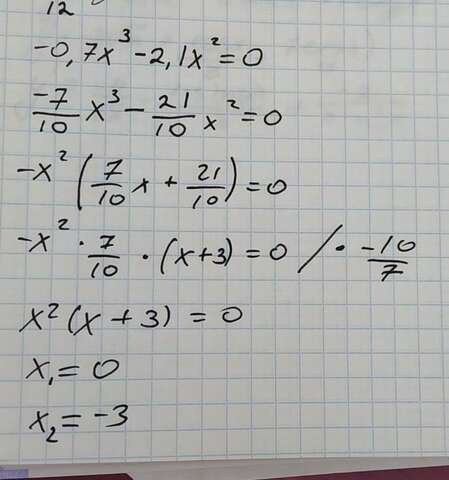 12
-0,7x³-2,1x²=0
-7/10 x³ - 21/10 x² = 0
-x² (7/10 x + 21/10) = 0
-x² · 7/10 · (x+3) = 0 / · -10/7
x² (x + 3) = 0
x₁ = 0
x₂ = -3